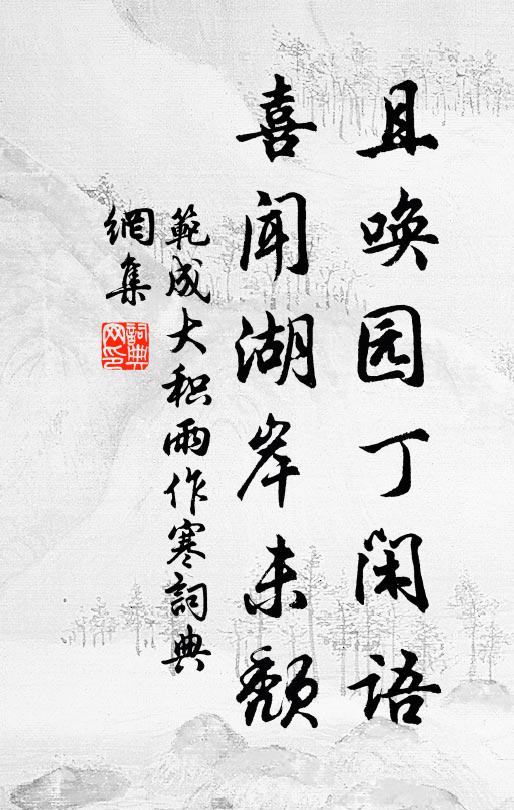 且唤园丁闲语
喜闻湖岸未颓
範成大积雨作寒詞典
網集
詞典网印